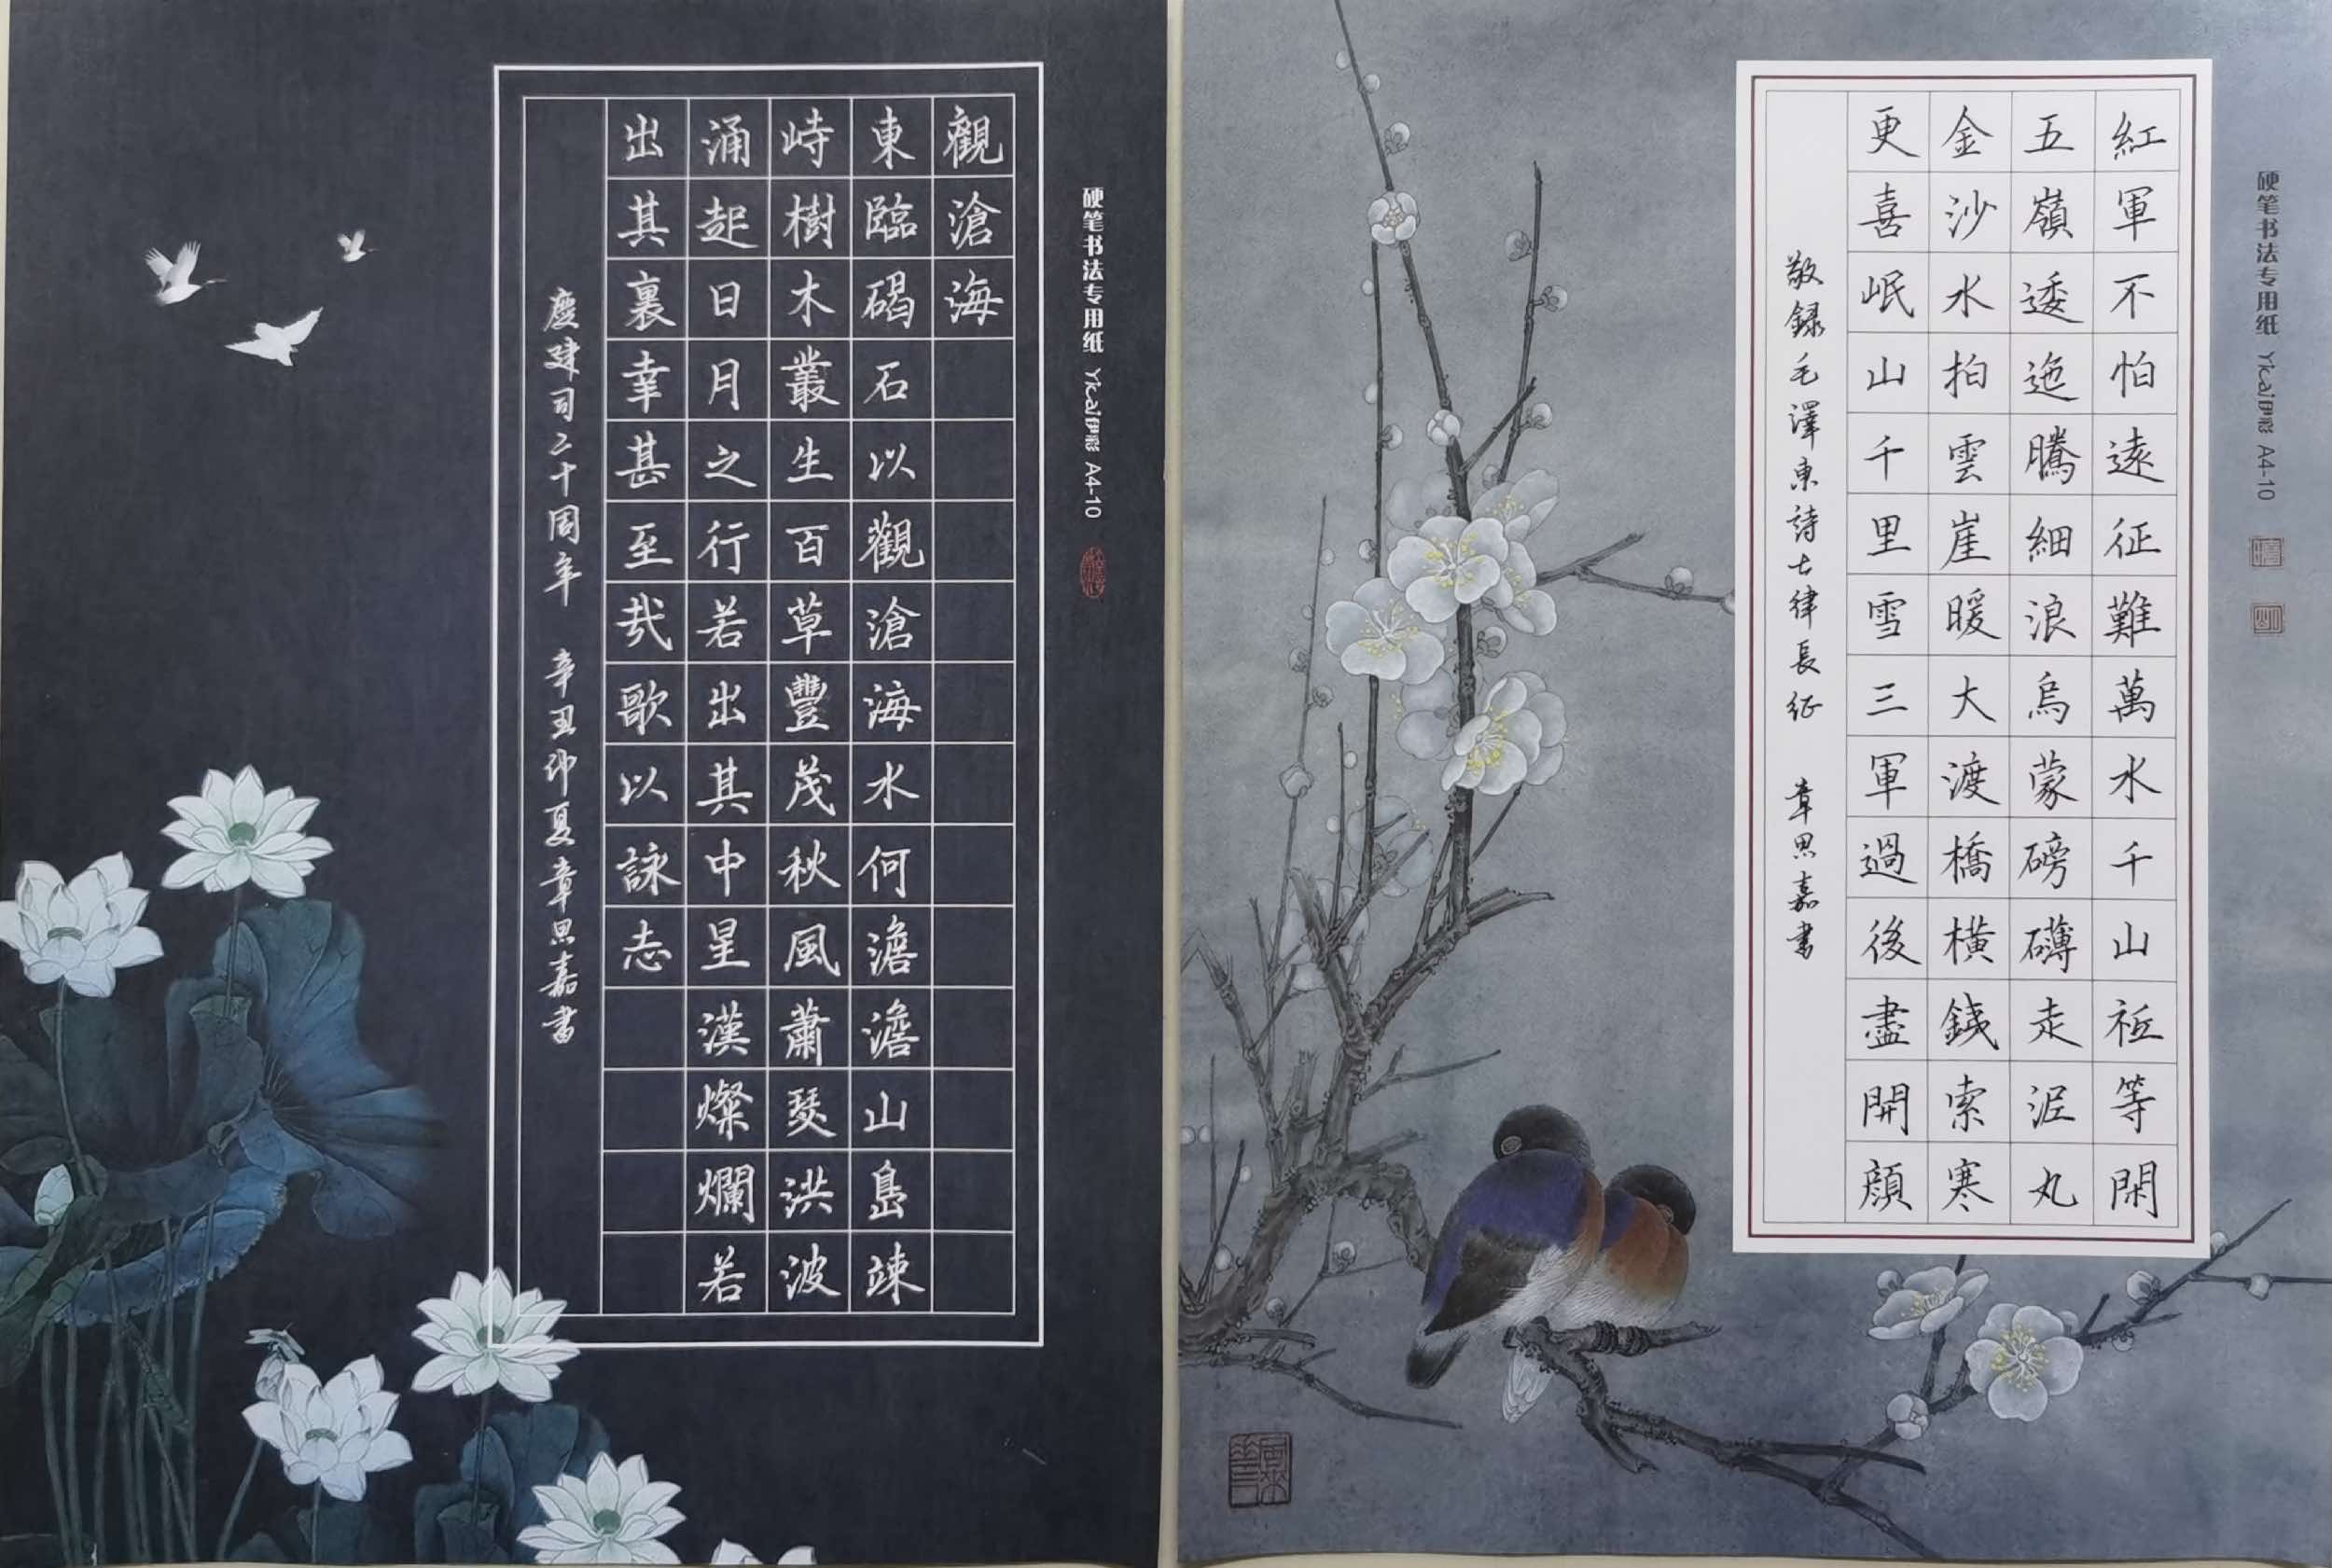 硬笔书法专用纸 Yicai伊彩 A4-10
紅軍不怕遠征難萬水千山祗等閑
五嶺逶迤騰細浪烏蒙磅礴走泥丸
金沙水拍雲崖暖大渡橋橫鐵索寒
更喜岷山千里雪三軍過後盡開顏
敬録毛澤東詩七律長征 章思嘉書
硬笔书法专用纸 Yicai伊彩 A4-10
觀滄海
東臨碣石以觀滄海水何澹澹山島竦
峙樹木叢生百草豐茂秋風蕭瑟洪波
涌起日月之行若出其中星漢燦爛若
出其裏幸甚至哉歌以詠志
慶建司二十周年 辛丑仲夏章思嘉書